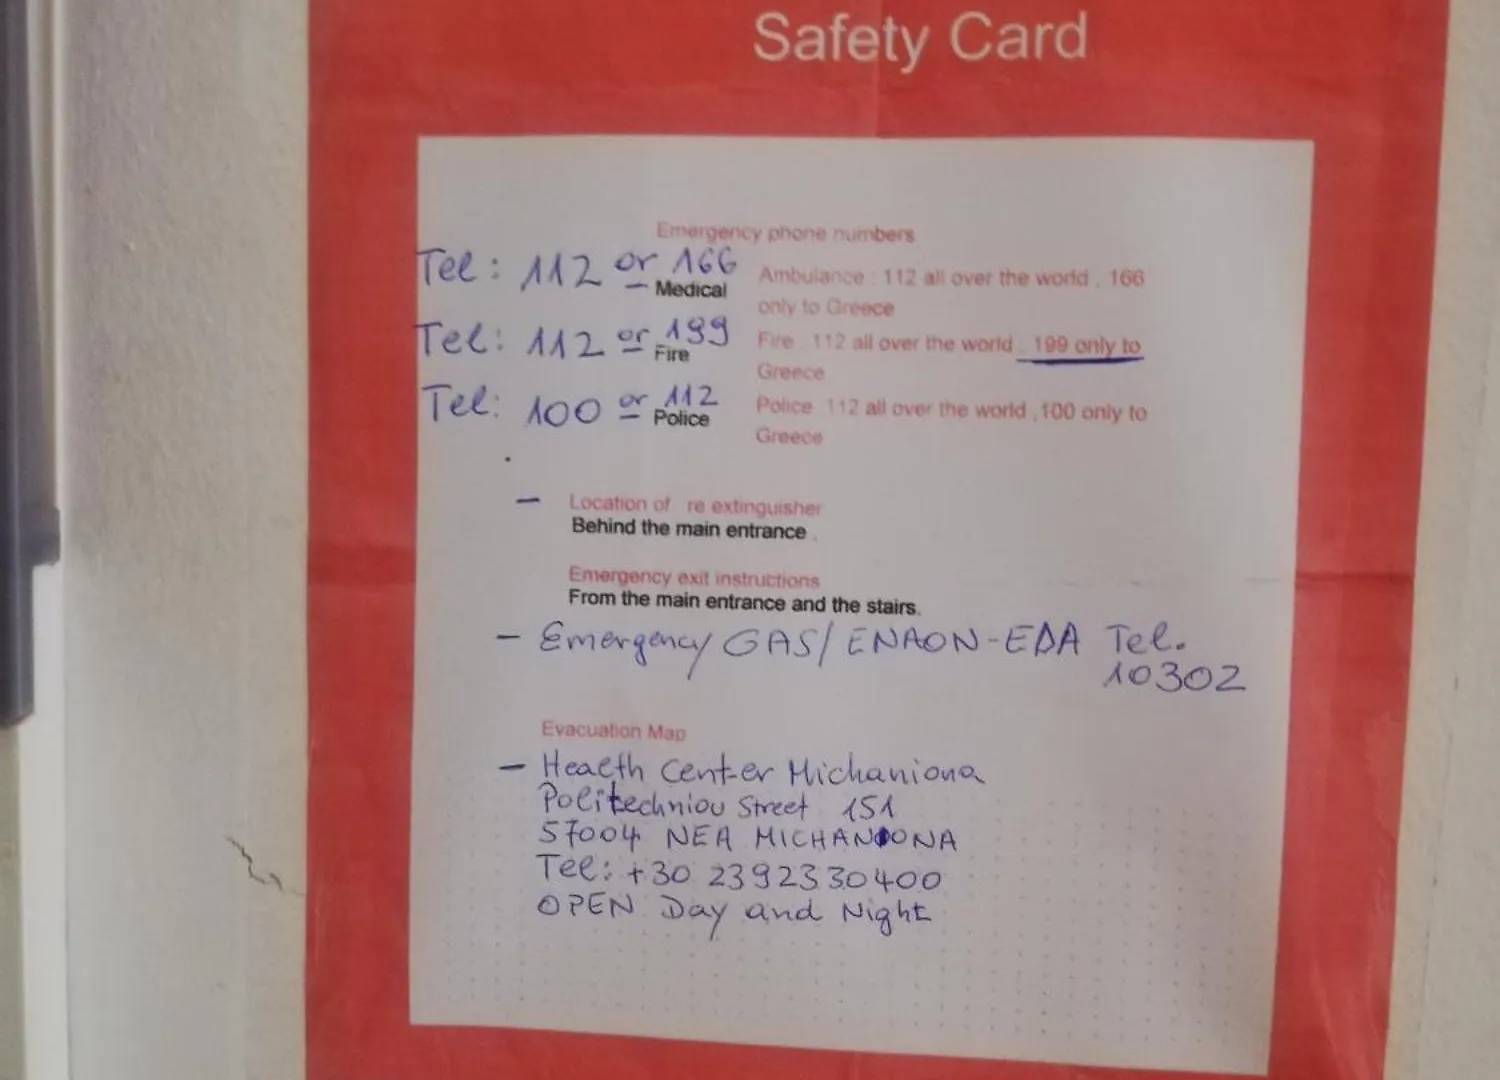 Safety Card
Emergency phone numbers
Tel: 112 or 166
Medical
Ambulance : 112 all over the world , 166
only to Greece
Tel: 112 or 199
Fire
Fire : 112 all over the world , 199 only to
Greece
Tel: 100 or 112
Police
Police 112 all over the world ,100 only to
Greece
- Location of re extinguisher
Behind the main entrance .
Emergency exit instructions
From the main entrance and the stairs.
- Emergency GAS/ ENAON-EDA Tel.
10302
Evacuation Map
- Health Center Michaniona
Politechniou Street 151
57004 NEA MICHANIONA
Tel: +30 2392330400
OPEN Day and Night